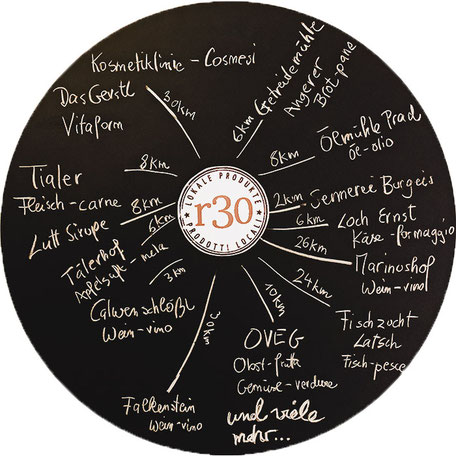 Kosmetiklinie - Cosmesi
Das Gerstl
Vitaform
30km
6km Getreidemühle
Angerer
Brot-pane
8km
Ölmühle Prad
Öl-olio
Tialer
Fleisch-carne
8km
8km
Luft Sirupe
6km
Tälerhof
Apfelsaft-mela
3km
Calwenschlößl
Wein-vino
LOKALE PRODUKTE
r30
PRODOTTI LOCALI
2km
Sennerei Burgeis
6km
Loch Ernst
Käse-formaggio
26km
Marinushof
Wein-vino
24km
Fischzucht
Latsch
Fisch-pesce
10km
OVEG
Obst-frutta
Gemüse-verdure
und viele
mehr...
30km
Falkenstein
Wein-vino